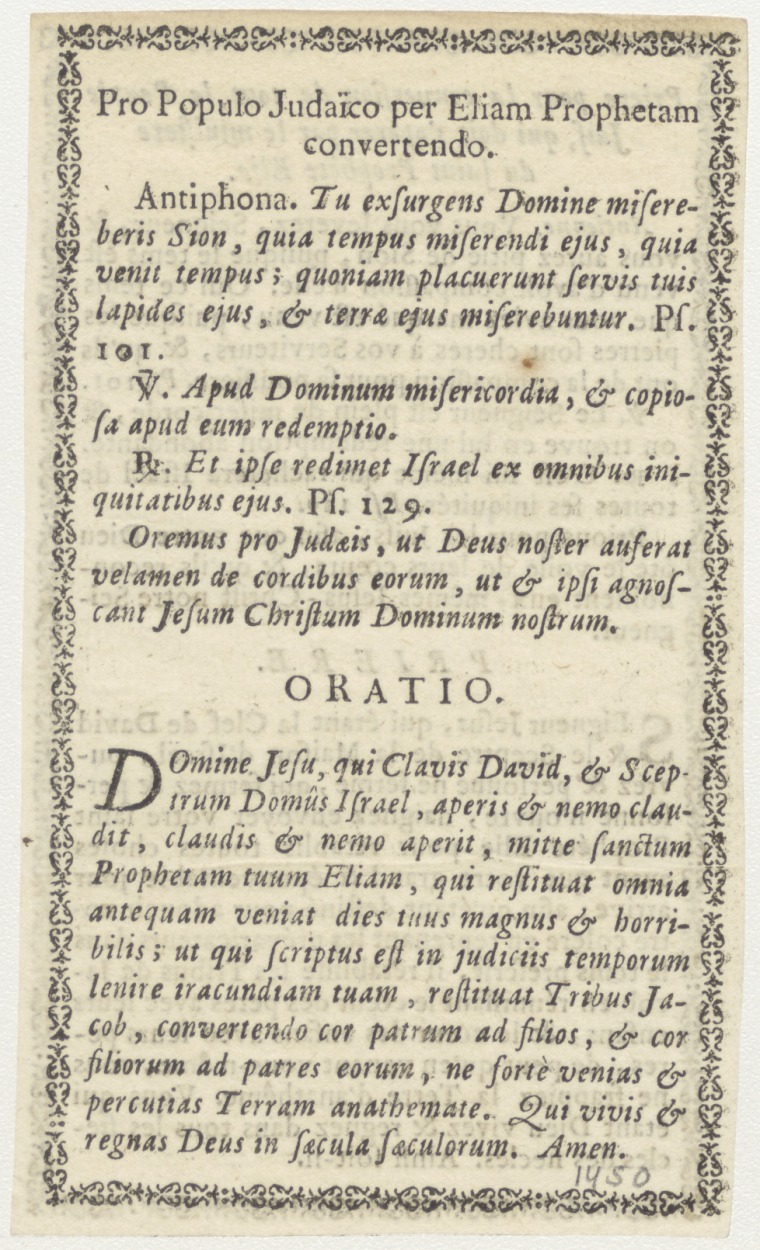 Pro Populo Judaïco per Eliam Prophetam
convertendo.
Antiphona. Tu exſurgens Domine miſere-
beris Sion, quia tempus miſerendi ejus, quia
venit tempus; quoniam placuerunt ſervis tuis
lapides ejus, & terræ ejus miſerebuntur. Pſ.
101.
℣. Apud Dominum miſericordia, & copio-
ſa apud eum redemptio.
℟. Et ipſe redimet Iſrael ex omnibus ini-
quitatibus ejus. Pſ. 129.
Oremus pro Judæis, ut Deus noſter auferat
velamen de cordibus eorum, ut & ipſi agnoſ-
cant Jeſum Chriſtum Dominum noſtrum.
ORATIO.
DOmine Jeſu, qui Clavis David, & Scep-
trum Domûs Iſrael, aperis & nemo clau-
dit, claudis & nemo aperit, mitte ſanctum
Prophetam tuum Eliam, qui reſtituat omnia
antequam veniat dies tuus magnus & horri-
bilis; ut qui ſcriptus eſt in judiciis temporum
lenire iracundiam tuam, reſtituat Tribus Ja-
cob, convertendo cor patrum ad filios, & cor
filiorum ad patres eorum, ne fortè venias &
percutias Terram anathemate. Qui vivis &
regnas Deus in ſæcula ſæculorum. Amen.
1450